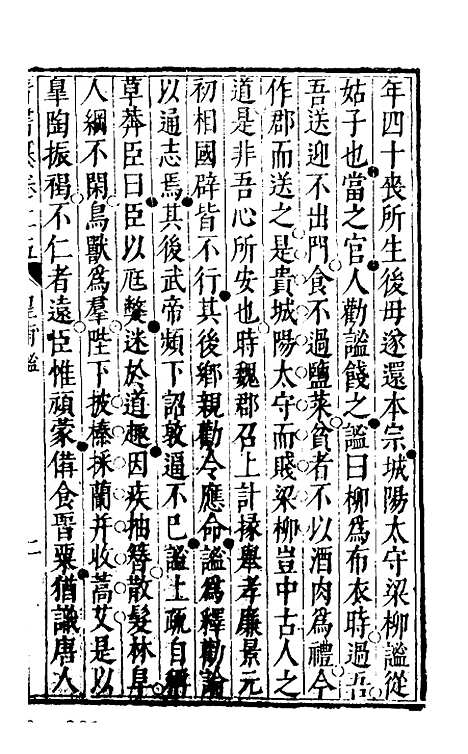 年四十喪所生後母遂還本宗城陽太守梁柳謐從
姑子也當之官人勸謐餞之謐曰柳爲布衣時過吾
吾送迎不出門食不過鹽菜貧者不以酒肉爲禮今
作郡而送之是貴城陽太守而賤梁柳豈中古人之
道是非吾心所安也時魏郡召上計掾舉孝廉景元
初相國辟皆不行其後鄉親勸令應命謐爲釋勸論
以通志焉其後武帝頻下詔敦逼不已謐上疏自稱
草莽臣曰臣以尫弊迷於道趣因疾抽簪散髮林阜
人綱不閑鳥獸爲羣陛下披榛採蘭并收蒿艾是以
皐陶振褐不仁者遠臣惟頑蒙備食晋粟猶識唐人
皇甫謐 二